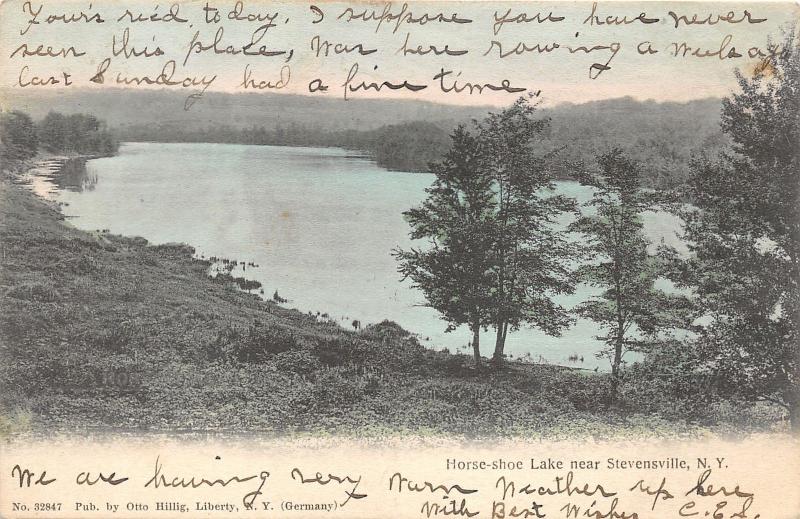 Your's rec'd today, I suppose you have never
seen this place, Was here rowing a week ago
last Sunday had a fine time.
Horse-shoe Lake near Stevensville, N. Y.
We are having very warm Weather up here
No. 32847 Pub. by Otto Hillig, Liberty, N. Y. (Germany)
With Best Wishes C.E.S.